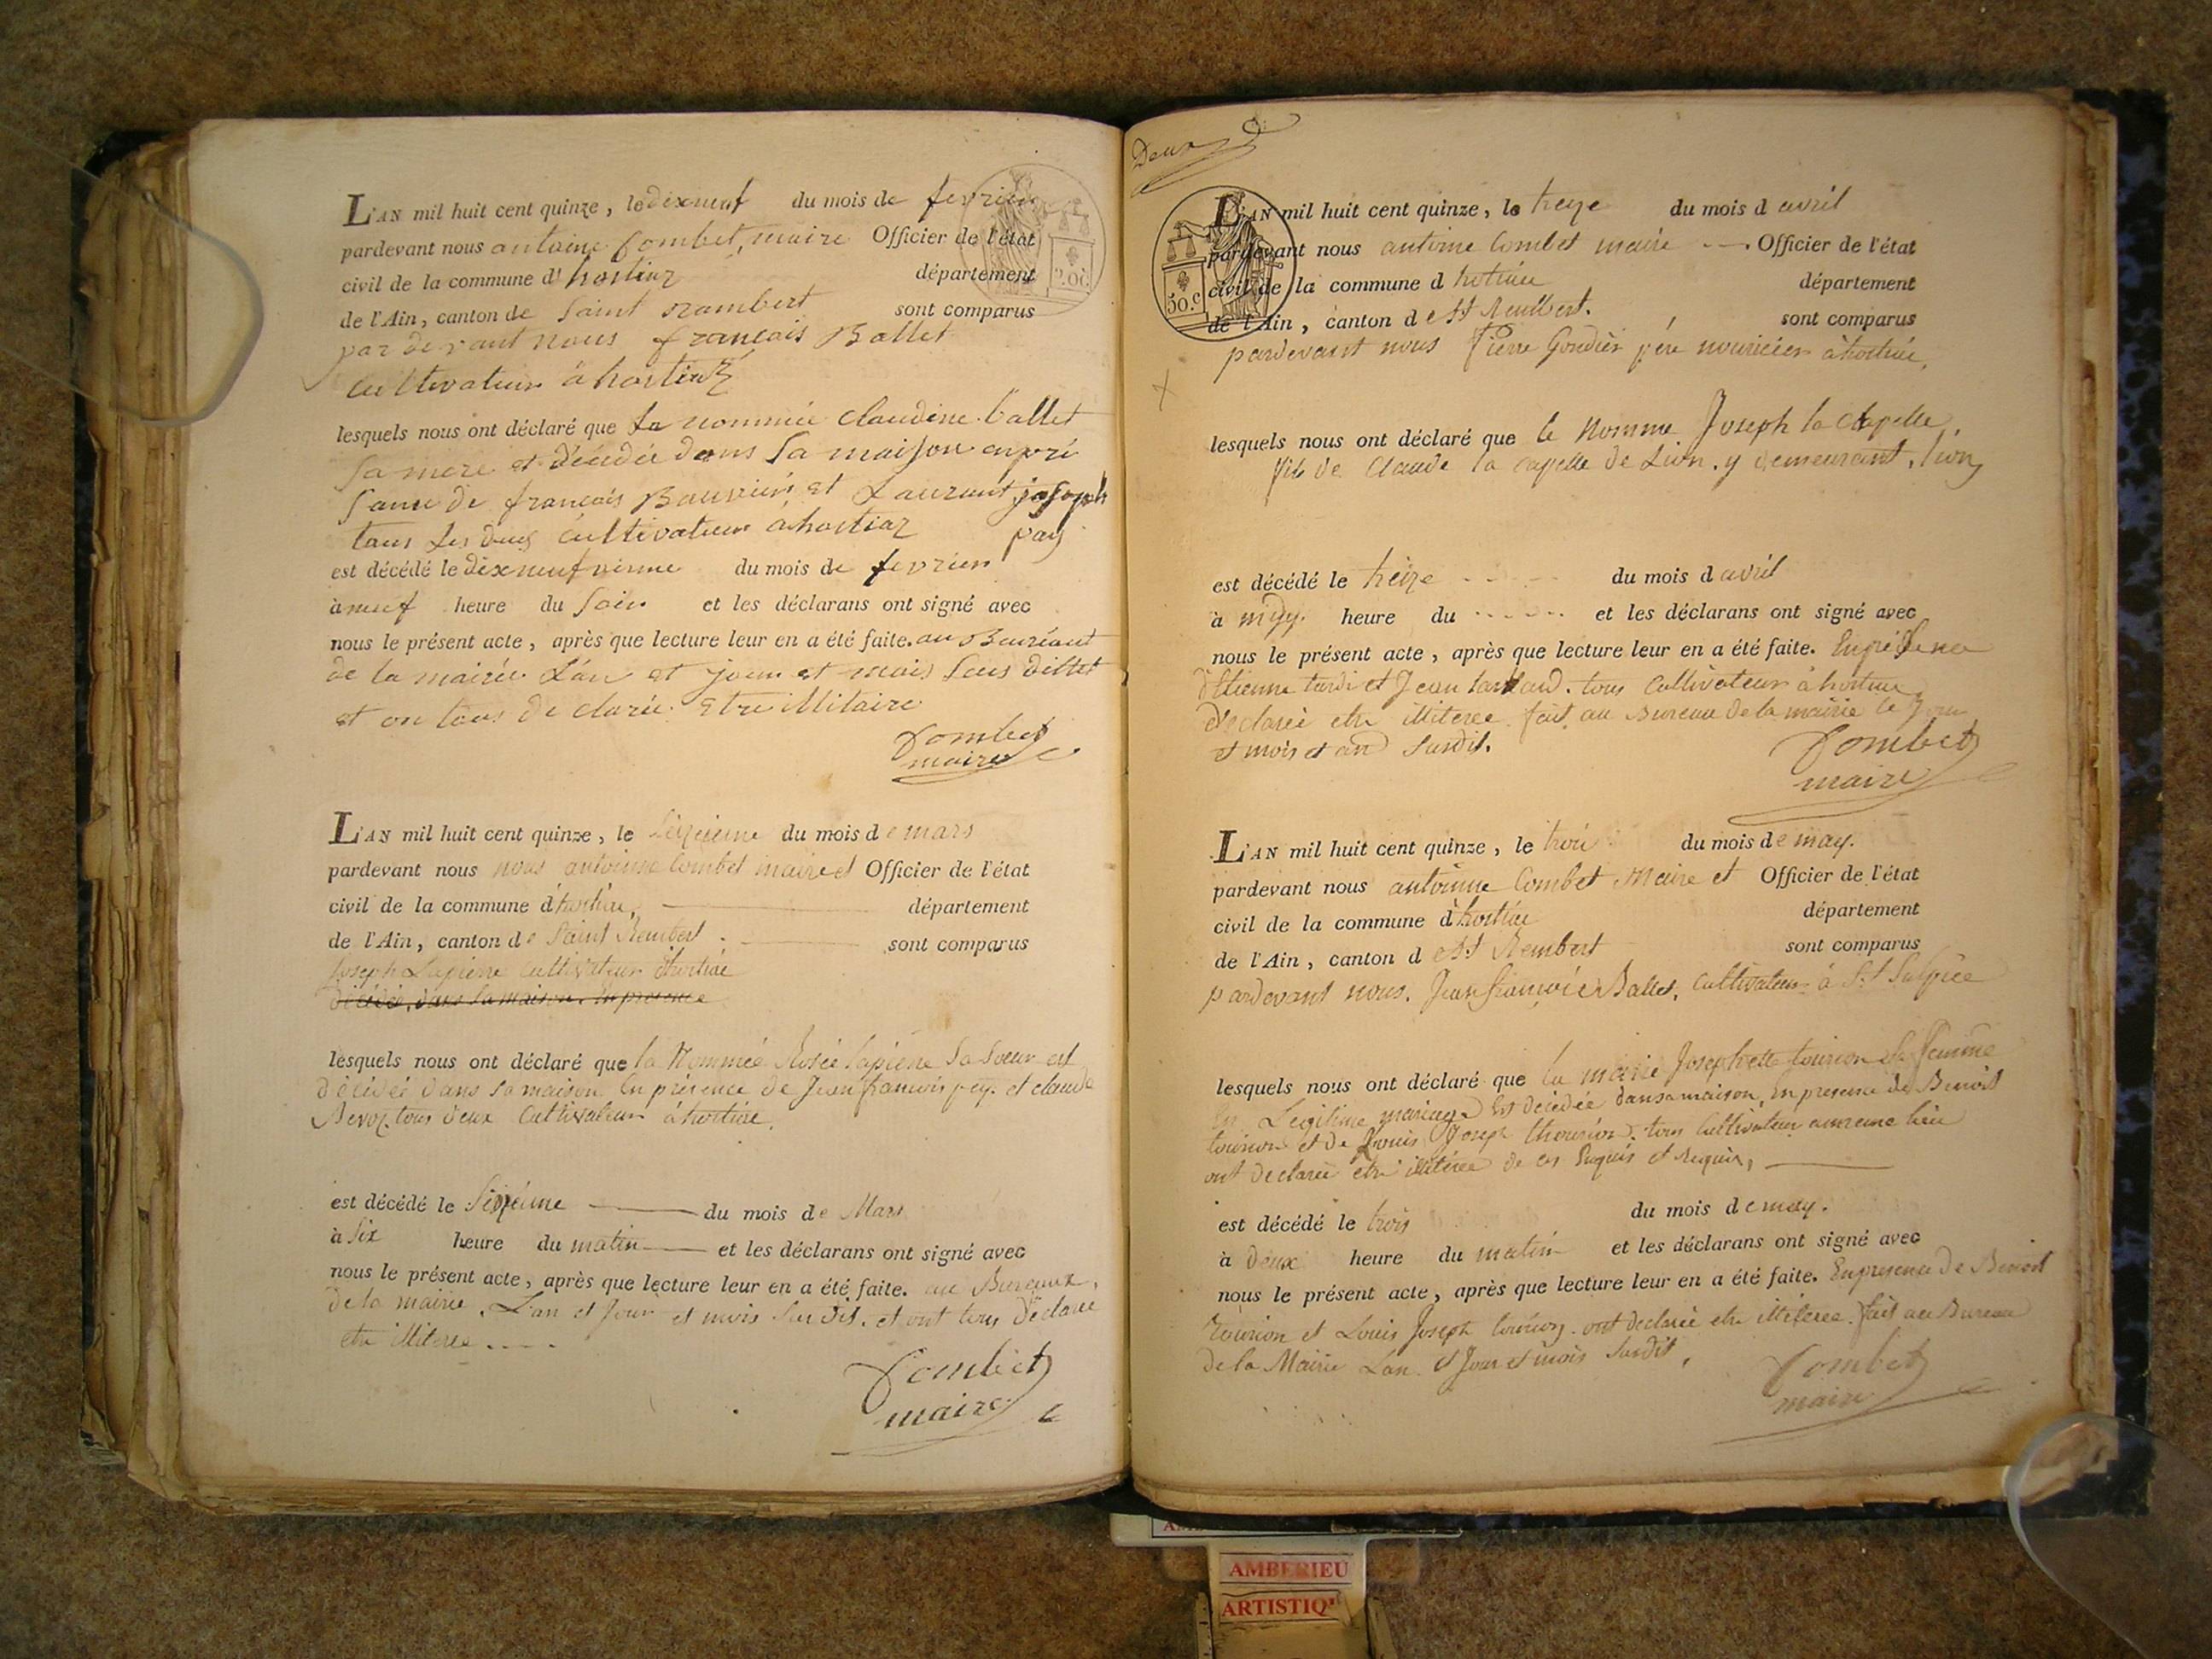 L'AN mil huit cent quinze, le dixneuf du mois de fevrier
pardevant nous antoine Combet, maire Officier de l'état
civil de la commune d'hostiaz département
de l'Ain, canton de Saint rambert sont comparus
par devant nous francais Ballet
cultivateur à hostiaz
lesquels nous ont déclaré que la nommée claudine ballet
sa mere et décédée dans sa maison en pré
sance de francais et Laurant joseph
tous les deux cultivateur à hostiaz
est décédé le dixneufvieme du mois de fevrier
à neuf heure du soir et les déclarans ont signé avec
nous le présent acte, après que lecture leur en a été faite. au Bauréaut
de la mairie L'an et jour et mois sus dittet
et on tous declarée etre illitaire
Combet
maire
L'AN mil huit cent quinze, le du mois de mars
pardevant nous nous antoinne Combet maire et Officier de l'état
civil de la commune d'hostiaz, département
de l'Ain, canton de Saint Rembert. sont comparus
Joseph Lapierre cultivateur
décédée, dans sa maison. En presence
lesquels nous ont déclaré que la Nommée Lapierre sa soeur est
décédée dans sa maison En présence de Jean francois pey. et claude
tous deux cultivateur à hostiaz.
est décédé le du mois de Mars
à Six heure du matin et les déclarans ont signé avec
nous le présent acte, après que lecture leur en a été faite. au Bureaux,
de la mairie. L'an et Jour et mois Sus dit. et ont tous declaré
etre illiteree....
Combet
maire
Deux
50.c
L'AN mil huit cent quinze, le treize du mois d avril
pardevant nous antoine Combet maire Officier de l'état
civil de la commune d département
de l'Ain, canton de St sont comparus
pardevant nous Pierre Gondier père nouricier à
lesquels nous ont déclaré que le Nomme Joseph la Chapelle.
fils de Claude la Capelle de Lion. y demeurant, Lion
est décédé le treize du mois d avril
à midy. heure du et les déclarans ont signé avec
nous le présent acte, après que lecture leur en a été faite. En présence
d'Etienne et Jean tous Cultivateur à
déclarée etre illiteree fait au Bureau de la mairie le Jour
et mois et an susdit.
Combet
maire
L'AN mil huit cent quinze, le trois du mois de may.
pardevant nous antoinne Combet Maire et Officier de l'état
civil de la commune d'hostiaz département
de l'Ain, canton de St Rembert sont comparus
pardevant nous. Jean françois Ballet, Cultivateur à St Sulpice
lesquels nous ont déclaré que la Josephette sa femme
En Legitime mariage Est décédée dans sa maison, En presence de Benoit
et de Louis Joseph tous Cultivateur au meme lieu
ont declarée etre illiteree de ce Enquis et Requis,
est décédé le trois du mois de may.
à Deux heure du matin et les déclarans ont signé avec
nous le présent acte, après que lecture leur en a été faite. En presence de Benoit
et Louis Joseph ont declarée etre illiteree. fait au Bureau
de la Mairie Lan et Jour et mois susdit,
Combet
maire
AMBERIEU
ARTISTIQ'